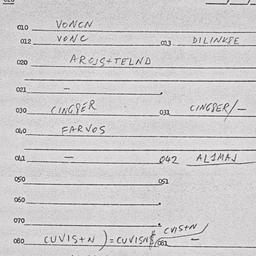 010 VONCN
012 VONC 013 DILINKSE
020 ARCJS+TELND
021 -
030 CINGSER 031 CINGSER/-
040 FARVOS
041 - 042 ALIMAJ
050 051
060
070
080 CUVIS+N ) = CUVISN 081 CVIS+N -